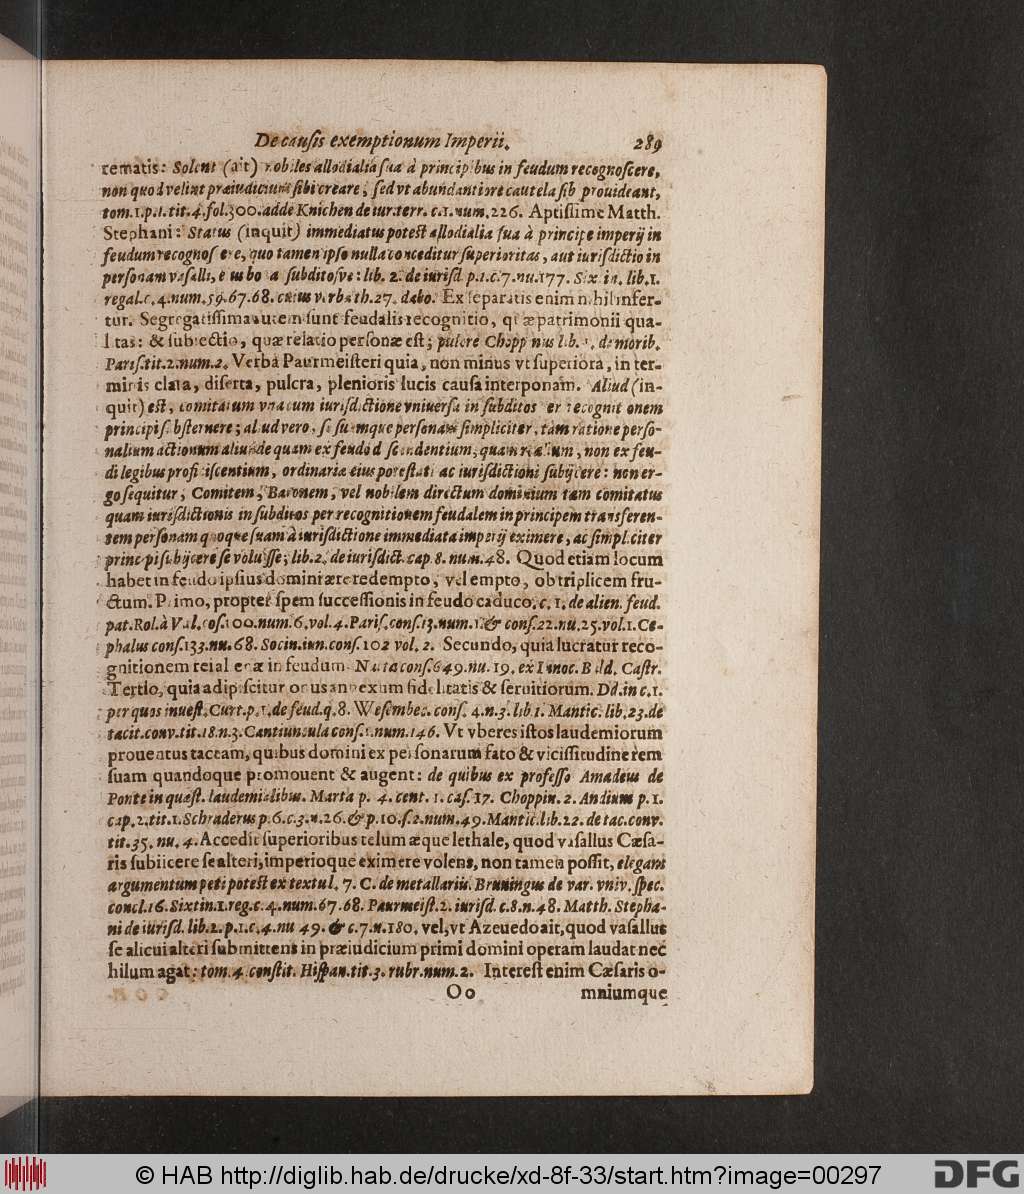 De causis exemptionum Imperii. 289
rematis: Solent (ait) nobiles allodialia sua à principibus in feudum recognoscere,
non quod velint præiudicium sibi creare, sed vt abundantiore cautela sib prouideant,
tom.1.p.1.tit.4.fol.300.adde Knichen de iur.terr. c.1.num.226. Aptissime Matth.
Stephani: Status (inquit) immediatus potest allodialia sua à principe imperij in
feudum recognoscere, quo tamen ipso nulla conceditur superioritas, aut iurisdictio in
personam vasalli, eiusbona subditosve: lib. 2. de iurisd p.1.c.7.nu.177. Sixtin. lib.1.
regal.c.4.num.59.67.68. cuius verba th.27. dabo. Ex separatis enim nihil infer-
tur. Segregatissima autem sunt feudalis recognitio, quæ patrimonii qua-
litas: & subiectio, quæ relatio personæ est; pulcre Choppinus lib. de morib.
Paris.tit.2.num.2. Verba Paurmeisteri quia, non minus vt superiora, in ter-
minis clara, diserta, pulcra, plenioris lucis causa interponam. Aliud (in-
quit) est, comitatum vna cum iurisdictione vniuersa in subditos per recognitionem
principi substernere; aliud vero, se suamque personam simpliciter, tam ratione perso-
nalium actionum aliunde quam ex feudo descendentium, quam realium, non ex feu-
di legibus proficiscentium, ordinariæ eius potestati ac iurisdictioni subijcere: non er-
go sequitur, Comitem, Baronem, vel nobilem directum dominium tam comitatus
quam iurisdictionis in subditos per recognitionem feudalem in principem transferen-
tem personam quoque suam à iurisdictione immediata imperij eximere, ac simpliciter
principi subijcere se voluisse; lib.2. de iurisdict.cap.8.num.48. Quod etiam locum
habet in feudo ipsius domini ære redempto, vel empto, ob triplicem fru-
ctum. Primo, propter spem successionis in feudo caduco. c. 1. de alien. feud.
pat.Rol.à Val.cos.100.num.6.vol.4.Paris.cons.13.num.1.& cons.22.nu.25.vol.1.Ce-
phalus cons.133.nu.68. Socin.iun.cons.102 vol. 2. Secundo, quia lucratur reco-
gnitionem rei allatæ in feudum. Natta cons.649.nu.19. ex Innoc. Bald. Castr.
Tertio, quia adipiscitur onus annexum fidelitatis & seruitiorum. Dd.in c.1.
per quos inuest.Curt.p.1.de feud.q.8. Wesembec. cons. 4.n.3.lib 1. Mantic.lib.23.de
tacit.conv.tit.18.n.3.Cantiuncula cons.1.num.146. Vt vberes istos laudemiorum
prouentus taceam, quibus domini ex personarum fato & vicissitudine rem
suam quandoque promouent & augent: de quibus ex professo Amadeus de
Ponte in quæst. laudemialibus. Marta p. 4. cent. 1. cas. 17. Choppin. 2. Andium p.1.
cap.2.tit.1.Schraderus p.6.c.3.n.26.& p.10.s.2.num.49.Mantic.lib.22. de tac.conv.
tit.35. nu. 4. Accedit superioribus telum æque lethale, quod vasallus Cæsa-
ris subiicere se alteri, imperioque eximere volens, non tamen possit, elegans
argumentum peti potest ex text ul. 7. C. de metallariis. Bruningus de var. vniv. spec.
concl.16. Sixtin.1.reg.c.4.num.67.68. Paurmeist.2. iurisd. c.8.n.48. Matth. Stepha-
ni de iurisd. lib.2.p.1.c.4.nu 49. & c.7.n.180. vel, vt Azeuedo ait, quod vasallus
se alicui alteri submittens in præiudicium primi domini operam laudat nec
hilum agat: tom.4 constit. Hispan.tit.3. rubr.num.2. Interest enim Cæsaris o-
Oo mniumque
© HAB http://diglib.hab.de/drucke/xd-8f-33/start.htm?image=00297
DFG